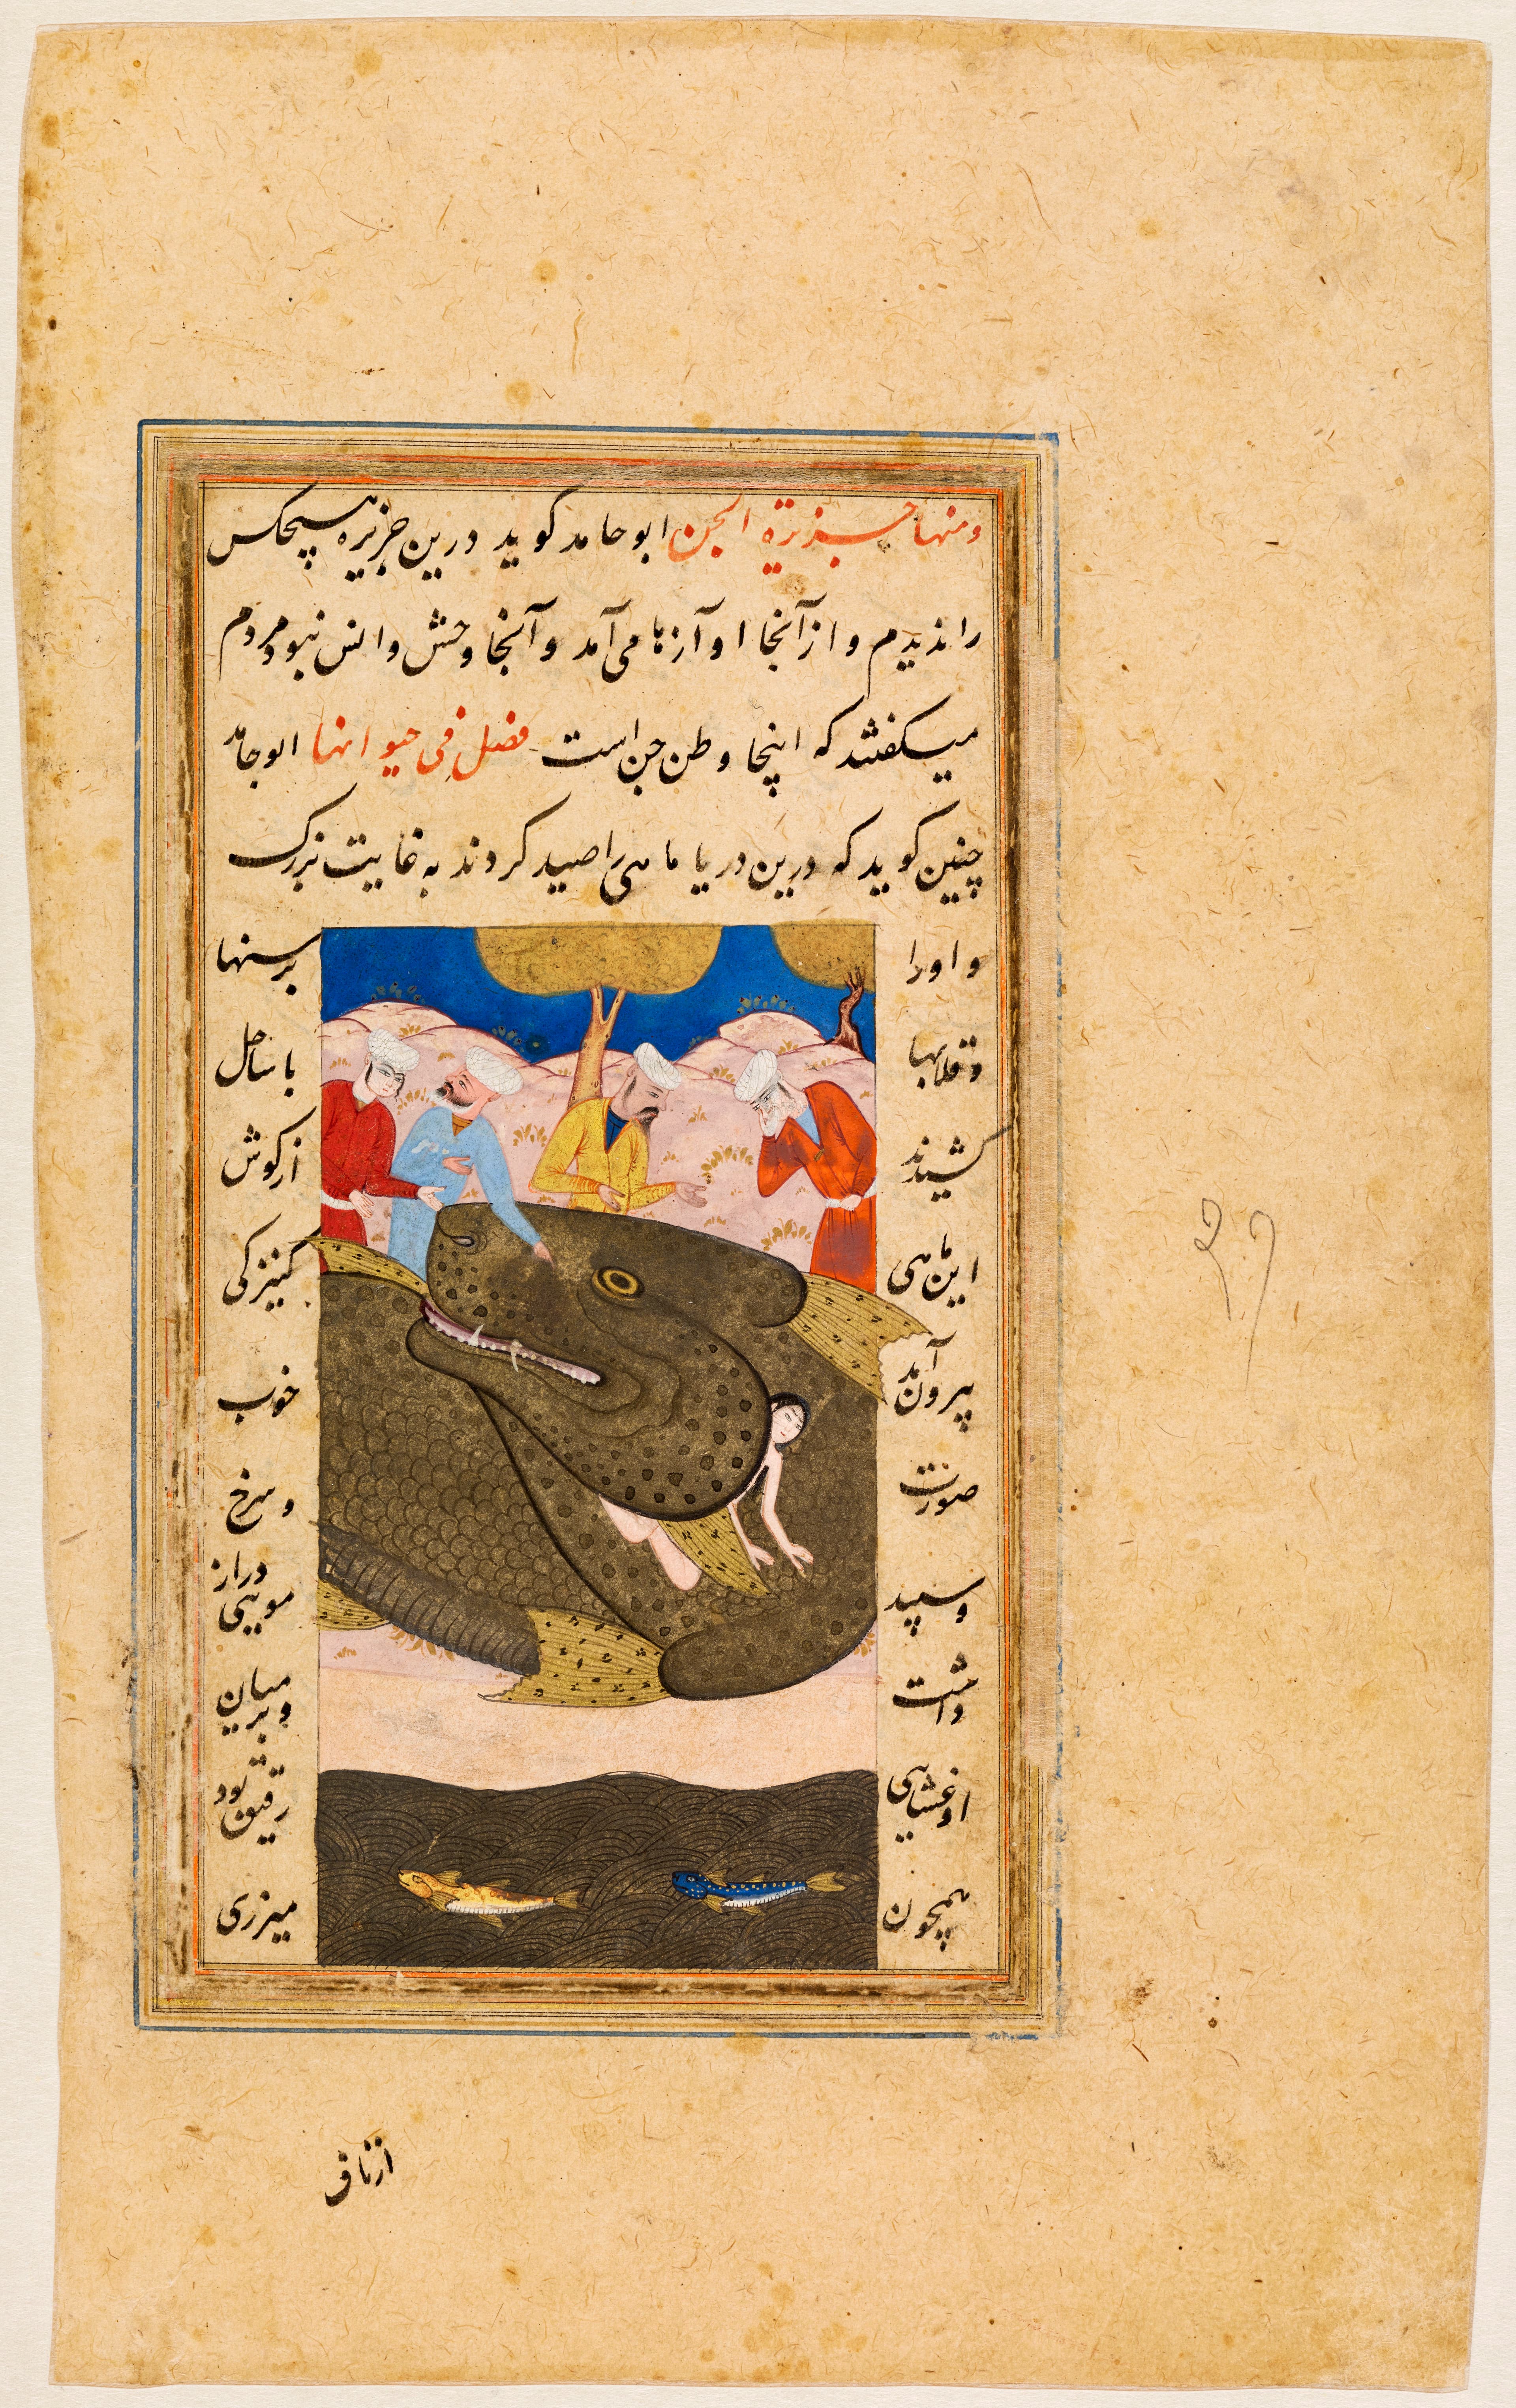 ومنها جزیرة الجن ابو حامد گوید درین جزیره هیچکس
را ندیدم و از آنجا اوآزها می آمد و آنجا وحش و انس نبود مردم
میکفتند که اینجا وطن جن است فصل فی حیوانها ابو حامد
چنین کوید که درین دریا ماهی را صید کردند به غایت بزرک
و اورا برسنها
وقلابها باساحل
کشیدند از کوش
این ماهی کنیزکی
بیرون آمد خوب
صورت و سرخ
وسپید دراز مویی
داشت و بر میان
او غشایی رقیق بود
همچون میزری
از ناف